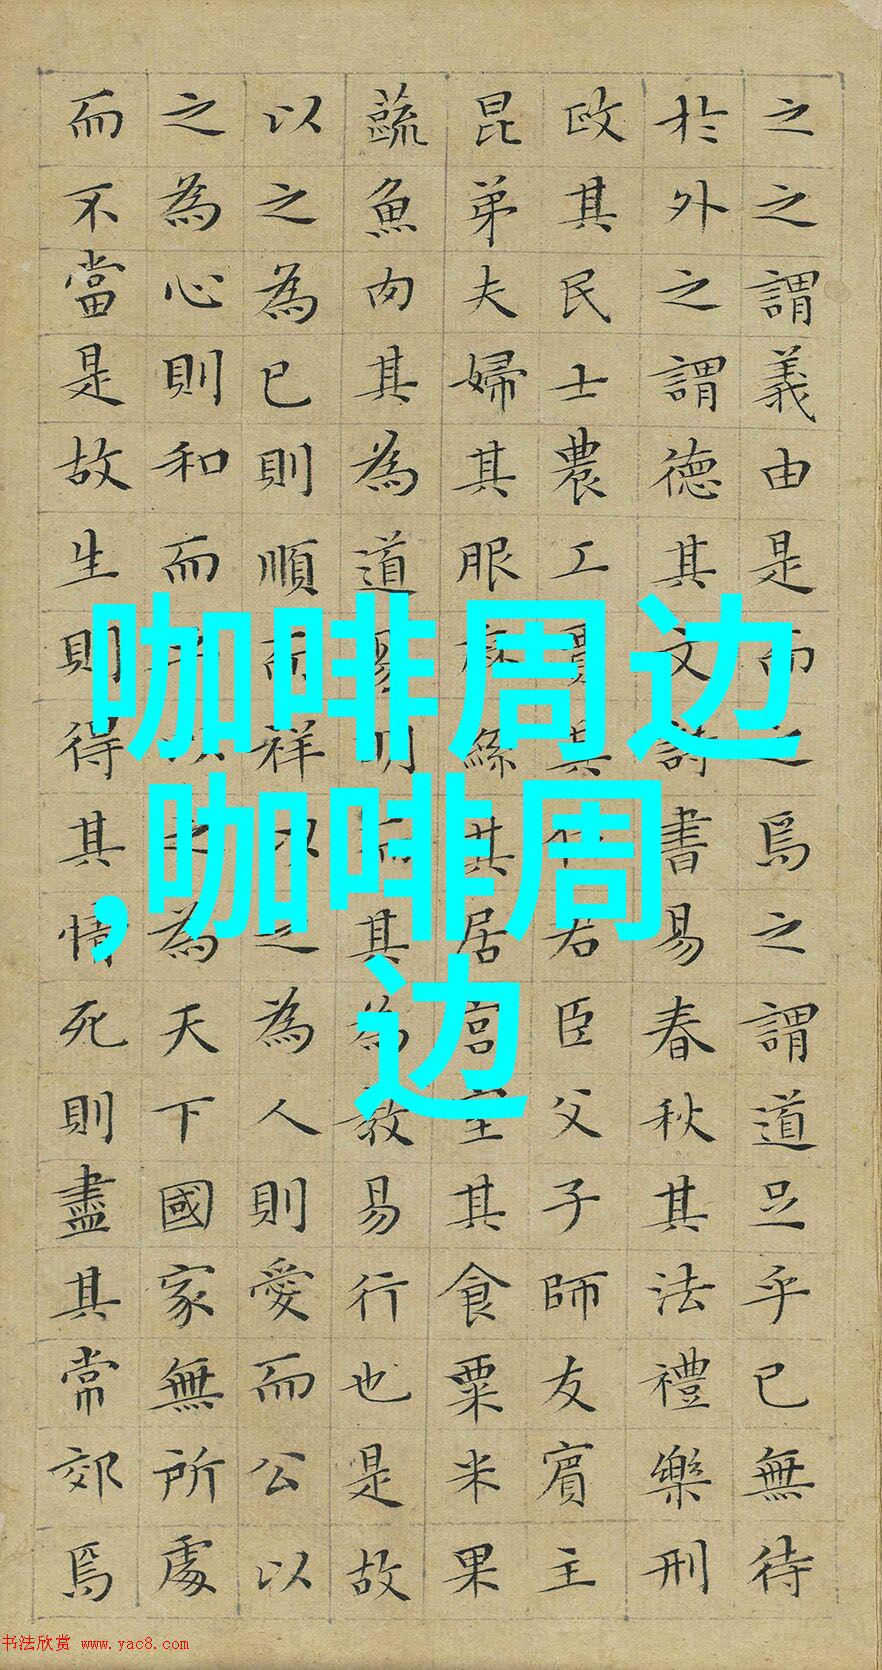 之之謂義由是而之焉之謂道足乎已無待
於外之謂德其文詩書易春秋其法禮樂刑
政其民士農工賈其位君臣父子師友賓主
昆弟夫婦其服麻絲其居宮室其食粟米果
蔬魚肉其為道易明而其為教易行也是故
以之為已則順而祥以之為人則愛而公以
之為心則和而平以之為天下國家無所處
而不當是故生則得其情死則盡其常郊焉
咖啡周边
,咖啡周
边
书法欣赏 www.yac8.com